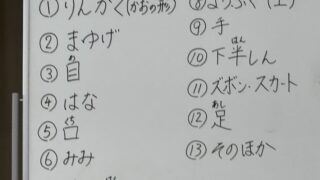 ①りんかく(かおの形)
②まゆげ
③目
④はな
⑤口
⑥みみ
⑨手
⑩下半しん
⑪ズボン・スカート
⑫足
⑬そのほか